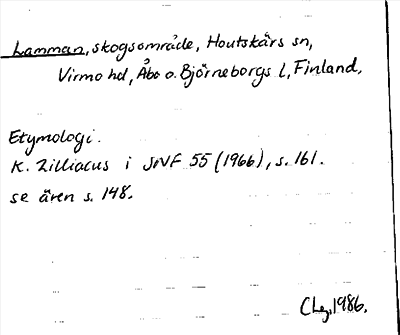 Lamman, skogsområde, Houtskärs sn,
Virmo hd, Åbo o. Björneborgs l, Finland,
Etymologi.
K. Zilliacus i SNF 55 (1966), s. 161.
se även s. 148.
1986.